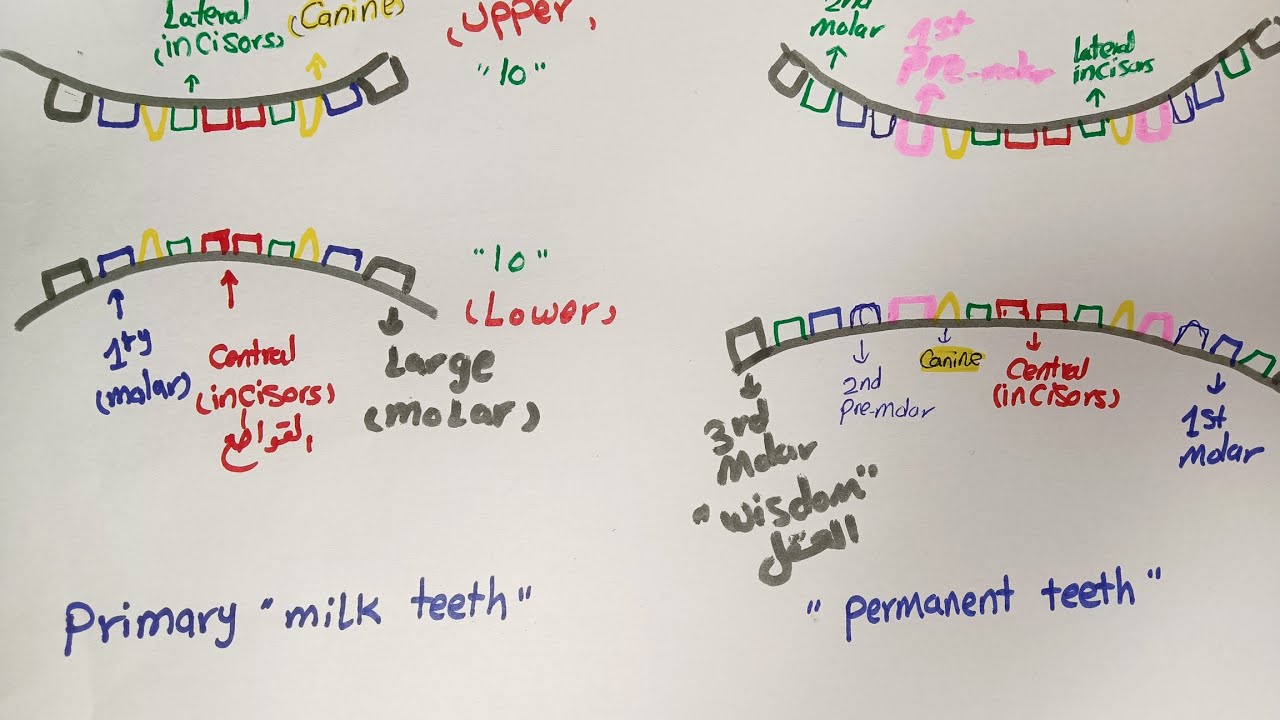 Lateral
(incisors)
(Canine)
(Upper)
"10"
2nd
molar
1st
Pre-molar
lateral
incisors
"10"
(Lower)
1ry
(molar)
Central
(incisors)
القواطع
Large
(moLar)
2nd
pre-molar
Canine
Central
(incisors)
1st
Molar
3rd
Molar
"wisdom"
العقل
Primary "milk teeth"
"permanent teeth"